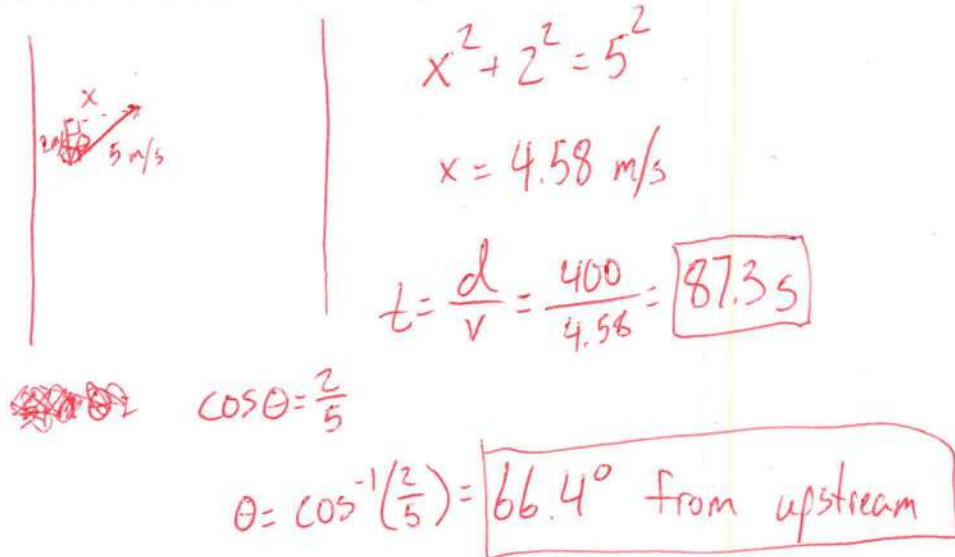 x
5 m/s
x² + 2² = 5²
x = 4.58 m/s
t = d/v = 400/4.58 = 87.3 s
cosθ = 2/5
θ = cos⁻¹(2/5) = 66.4° from upstream